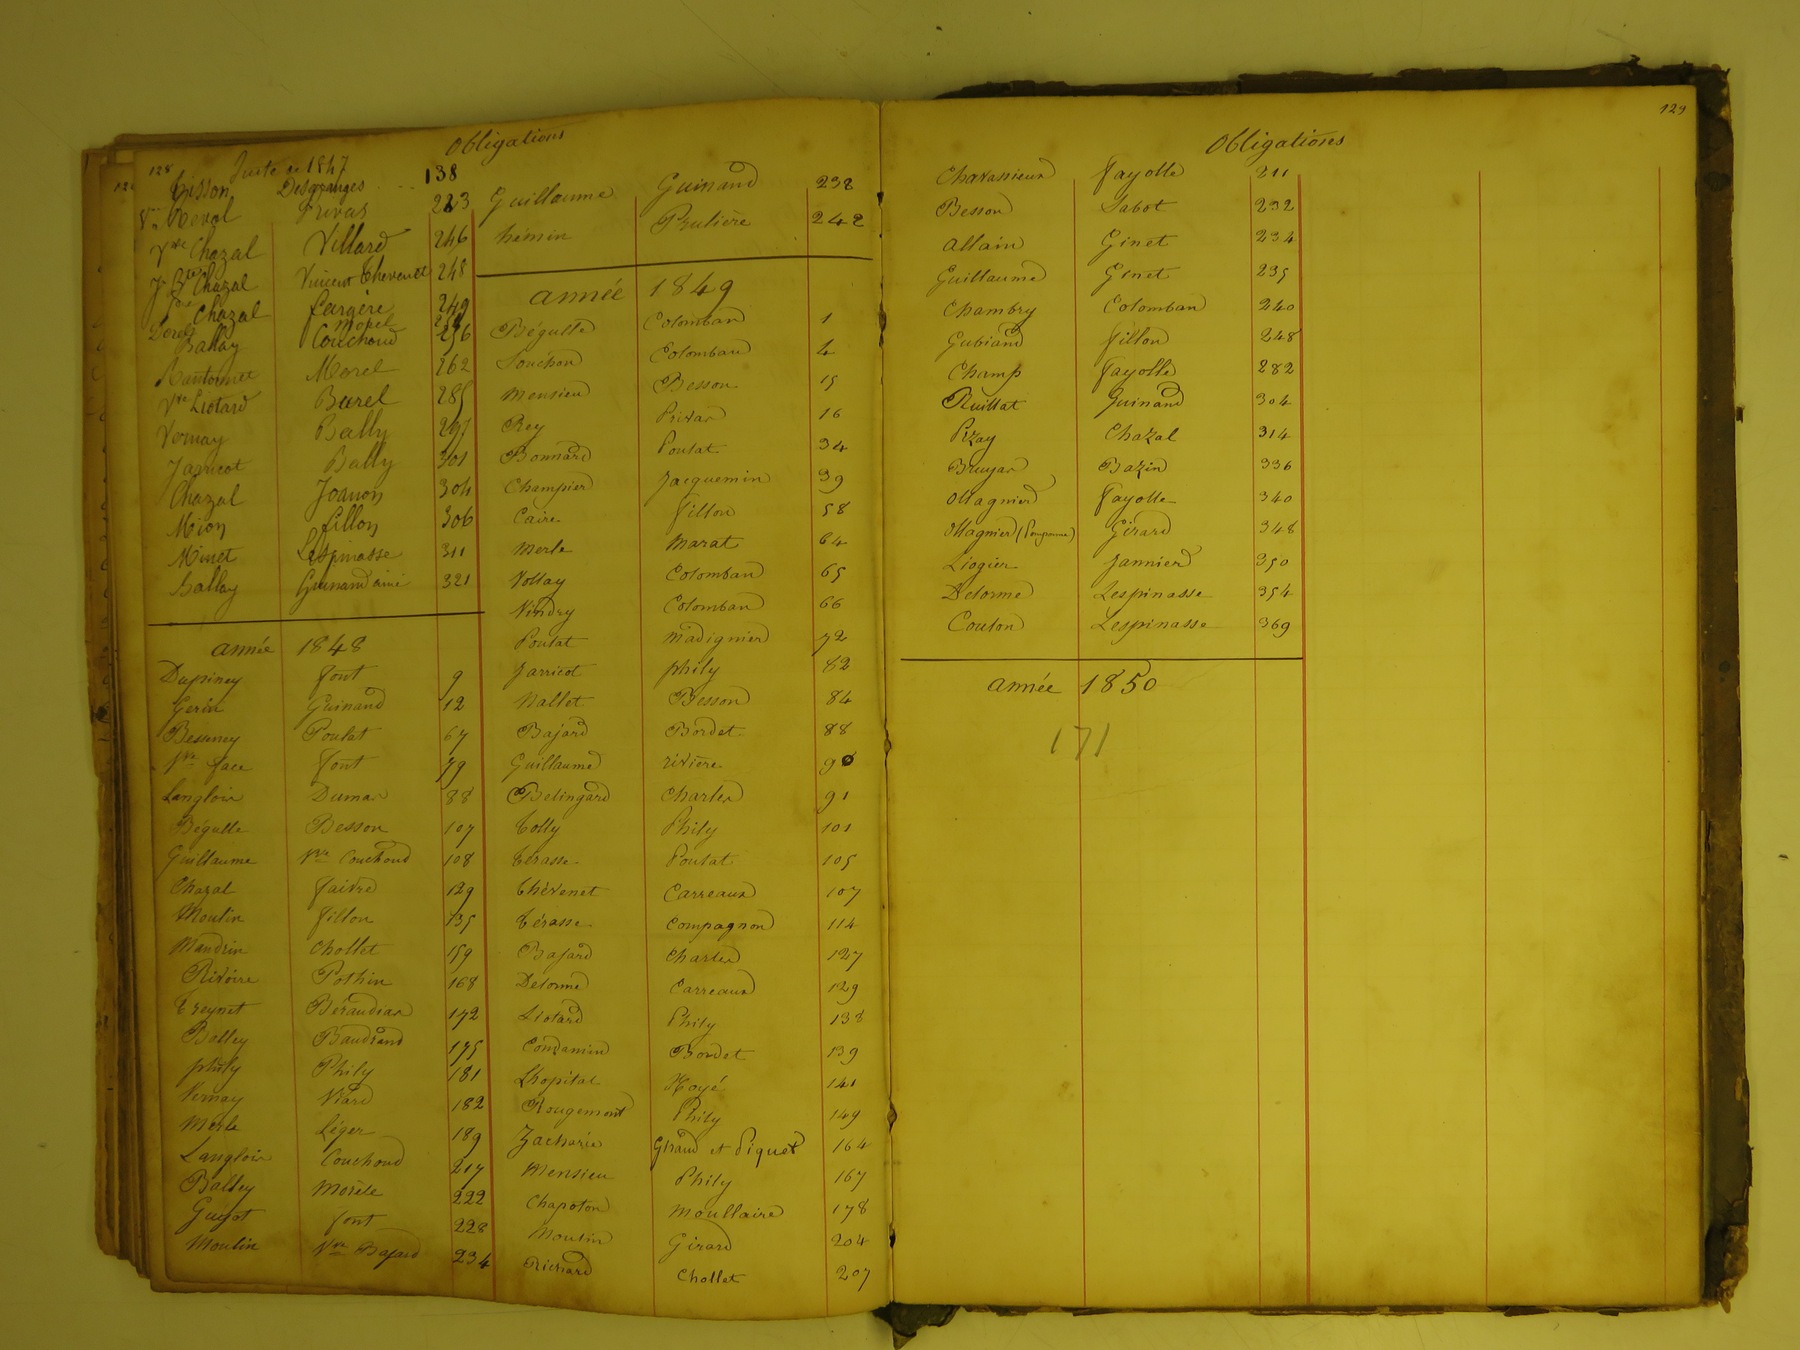 128
Obligations
Suite de 1847
Tisson Desgranges 138
Vve Neval Privas 223
Vve Chazal Villard 246
J. Bte Chazal Vincent Thevenet 248
Chazal Fargère 249
Morel
Ballay Couchoud 256
Morel 262
Vve Liotard Burel 285
Vernay Bally 297
Jaquicot Bally 301
Chazal Joanon 304
Mion Fillon 306
Minet Lespinasse 311
Ballay Guinand ainé 321
année 1848
Dupiney Font 9
Gerin Guinand 12
Besseney Poulat 67
Vve Face Font 79
Langlois Dumas 88
Bégulle Besson 107
Guillaume Vve Couchoud 108
Chazal Faivre 129
Moulin Fillon 135
Mandrin Chollet 159
Rivoire Pothin 168
Treynet Béraudias 172
Balley Baudrand 175
Phily Phily 181
Vernay Viard 182
Merle Léger 189
Langlois Couchoud 217
Balley Morèle 222
Guyot Font 228
Moulin Vve Bajard 234
Guillaume Guinand 238
hémin Prulière 242
année 1849
Bégulle Colomban 1
Souchon Colomban 4
Mensieu Besson 15
Rey Privas 16
Bonnard Poulat 34
Champier Jacquemin 39
Caire Fillon 58
Merle Marat 64
Vollay Colomban 65
Vindry Colomban 66
Poulat Madignier 72
Jarricot Phily 82
Nallet Besson 84
Bajard Bordet 88
Guillaume rivière 90
Belingard Charles 91
Tolly Phily 101
Térasse Poulat 105
Thévenet Carreaux 107
Térasse Compagnon 114
Bajard Charles 127
Delorme Carreaux 129
Liotard Phily 138
Condamin Bordet 139
Lhopital Moyé 141
Rougemont Phily 149
Zacharie Giraud et Piquet 164
Mensieu Phily 167
Chapoton Moullaire 178
Moulin Girard 204
Richard Chollet 207
129
Obligations
Chavassieux Fayolle 211
Besson Sabot 232
Allain Ginet 234
Guillaume Ginet 235
Chambry Colomban 240
Gubiand Fillon 248
Champ Fayolle 282
Ruillat Guinand 304
Pizay Chazal 314
Bruyas Bazin 336
Magnier Fayolle 340
Magnier (Pomponne) Girard 348
Liogier Jannier 350
Delorme Lespinasse 354
Couton Lespinasse 369
année 1850
171